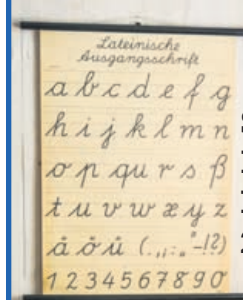 Lateinische
Ausgangsschrift
a b c d e f g
h i j k l m n
o p qu r s ß
t u v w x y z
ä ö ü (.,;:„"-!?)
1 2 3 4 5 6 7 8 9 0